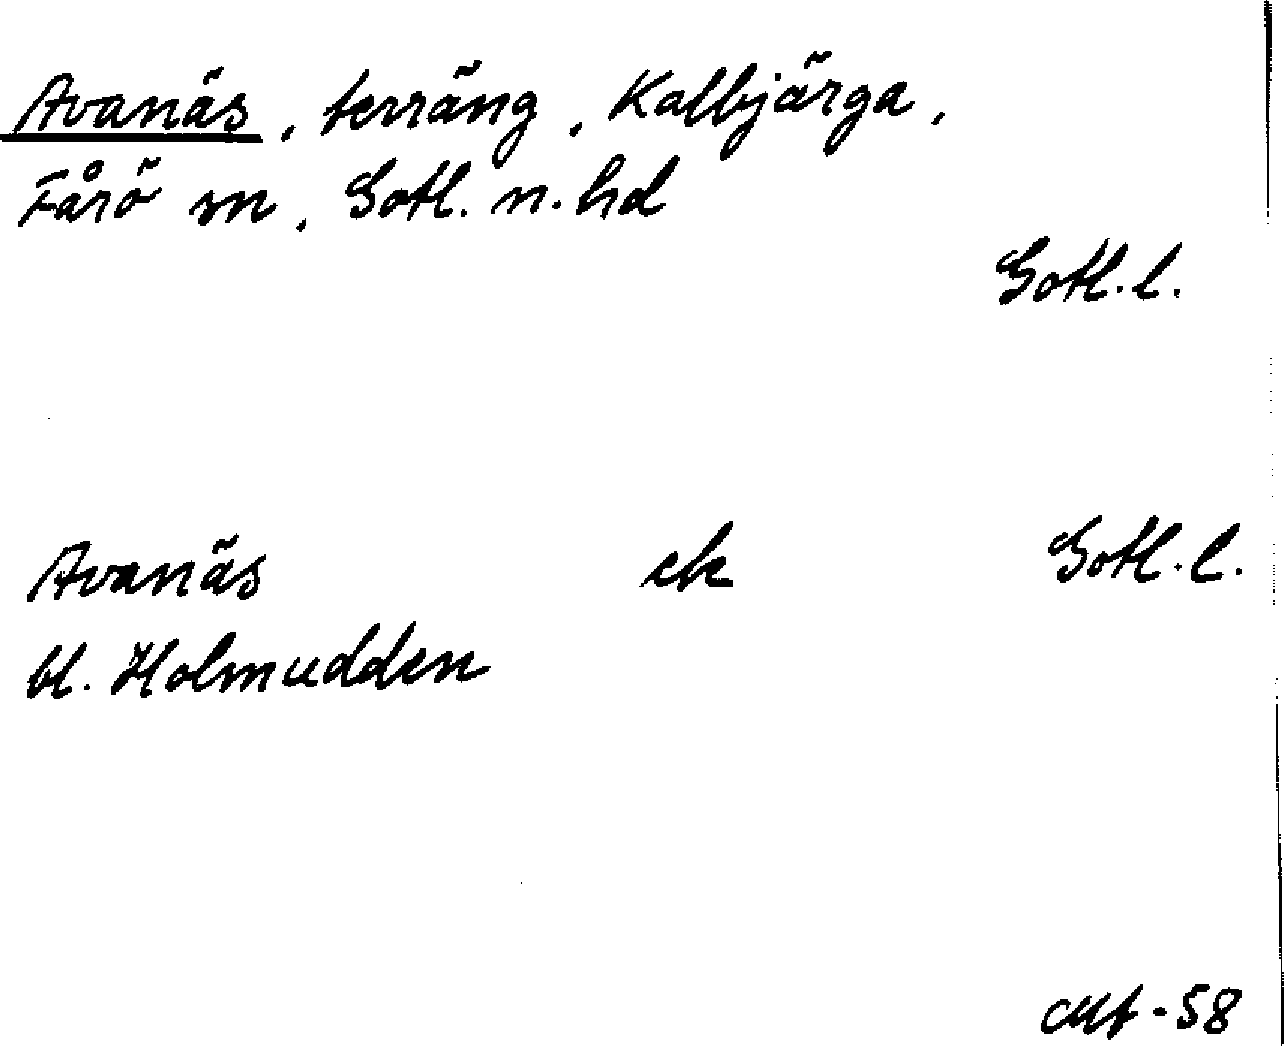 Avanäs, terräng, Kalbjärga,
Fårö sn, Gotl. n. hd
Gotl. l.
Avanäs ek Gotl. l.
bl. Holmudden
-58